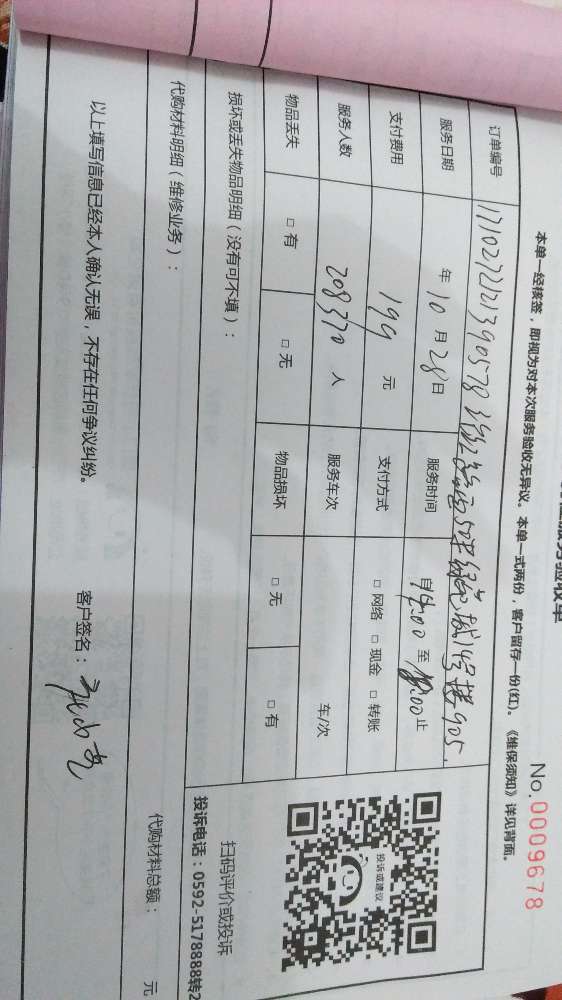 服务验收单
No.0009678
本单一经核签，即视为对本次服务验收无异议。本单一式两份，客户留存一份(红)。《维保须知》详见背面。
订单编号 905.
服务日期 年 10 月 28 日 服务时间 自 14:00 至 18:00 止
支付费用 199 元 支付方式 □ 网络 □ 现金 □ 转账
服务人数 208370 人 服务车次 车/次
物品丢失 □ 有 □ 无 物品损坏 □ 无 □ 有
损坏或丢失物品明细（没有可不填）：
投诉或建议
扫码评价或投诉
投诉电话：0592-5178888转2
代购材料明细（维修业务）：
代购材料总额： 元
以上填写信息已经本人确认无误，不存在任何争议纠纷。
客户签名：